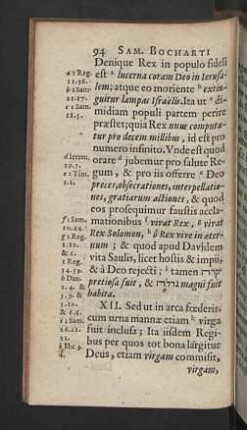 94 SAM. BOCHARTI
Denique Rex in populo fidesi
est ª lucerna coram Deo in Ierusa-
lem; atque eo moriente ᵇ extin-
guitur lampas Israëlis. Ita ut ᶜ di-
midiam populi partem perire
præstet; quia Rex unus computa-
tur pro decem millibus, id est pro
numero infinito. Unde est quod
orare ᵈ jubemur pro salute Re-
gum, & pro iis offerre ᵉ Deo
preces, obsecrationes, interpellatio-
nes, gratiarum actiones, & quod
eos prosequimur faustis accla-
mationibus ᶠ vivat Rex, ᵍ vivat
Rex Solomon, ʰ ô Rex vive in æter-
num; & quod apud Davidem
vita Saulis, licet hostis & impii,
& à Deo rejecti; ⁱ tamen יקרה
pretiosa fuit, & גדלה magni fuit
habita.
XII. Sed ut in arca fœderis,
cum urna mannæ etiam ᵏ virga
fuit inclusa; Ita iisdem Regi-
bus per quos tot bona largitur
Deus, etiam virgam commisit,
virgam,
a 1 Reg.
11.36.
b 2 Sam.
21.17.
c 2 Sam.
18.3.
d Ierem.
29.7.
e 1 Tim.
2.1.
f 1 Sam.
10.24.
g 1 Reg.
1 Reg.
h Dan.
& 6.
i 1 Sam.